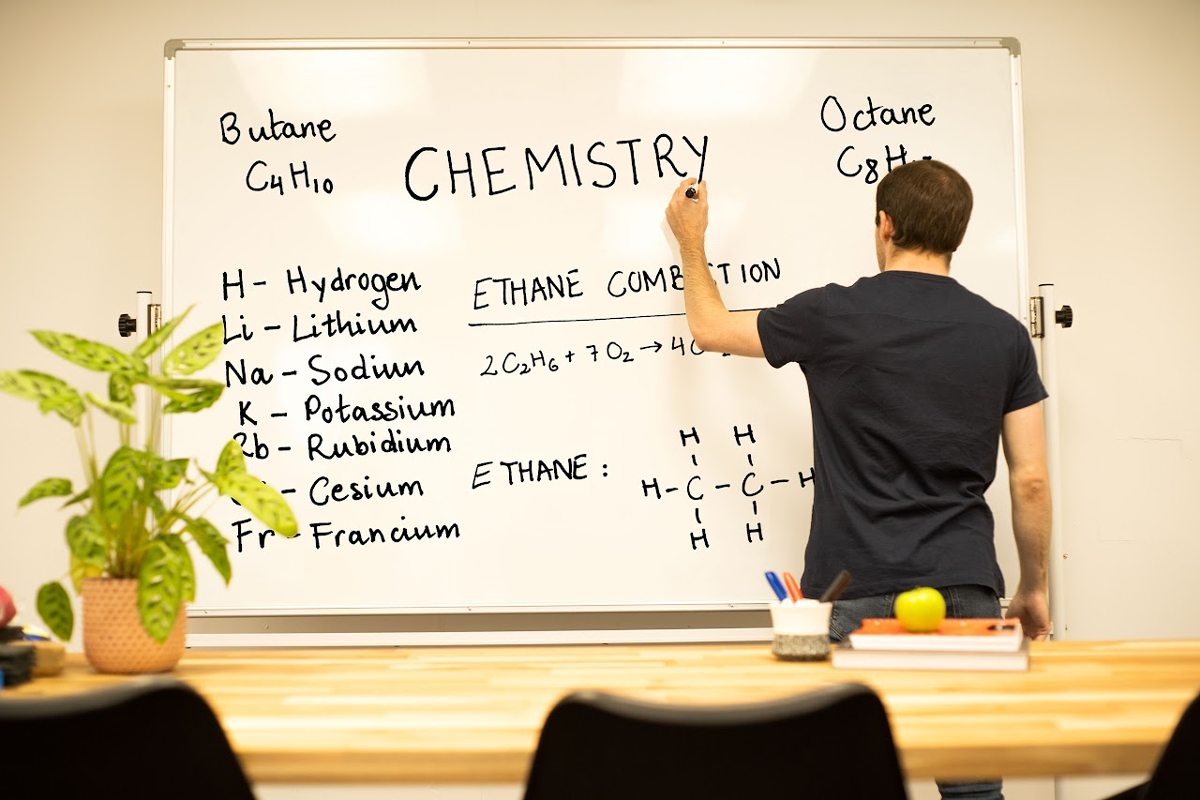 Butane
C₄H₁₀
CHEMISTRY
Octane
C₈H
H - Hydrogen
Li - Lithium
Na - Sodium
K - Potassium
Rb - Rubidium
- Cesium
Fr - Francium
ETHANE COMBUSTION
2C₂H₆ + 7O₂ → 4C
ETHANE:
H H
H-C-C-H
H H